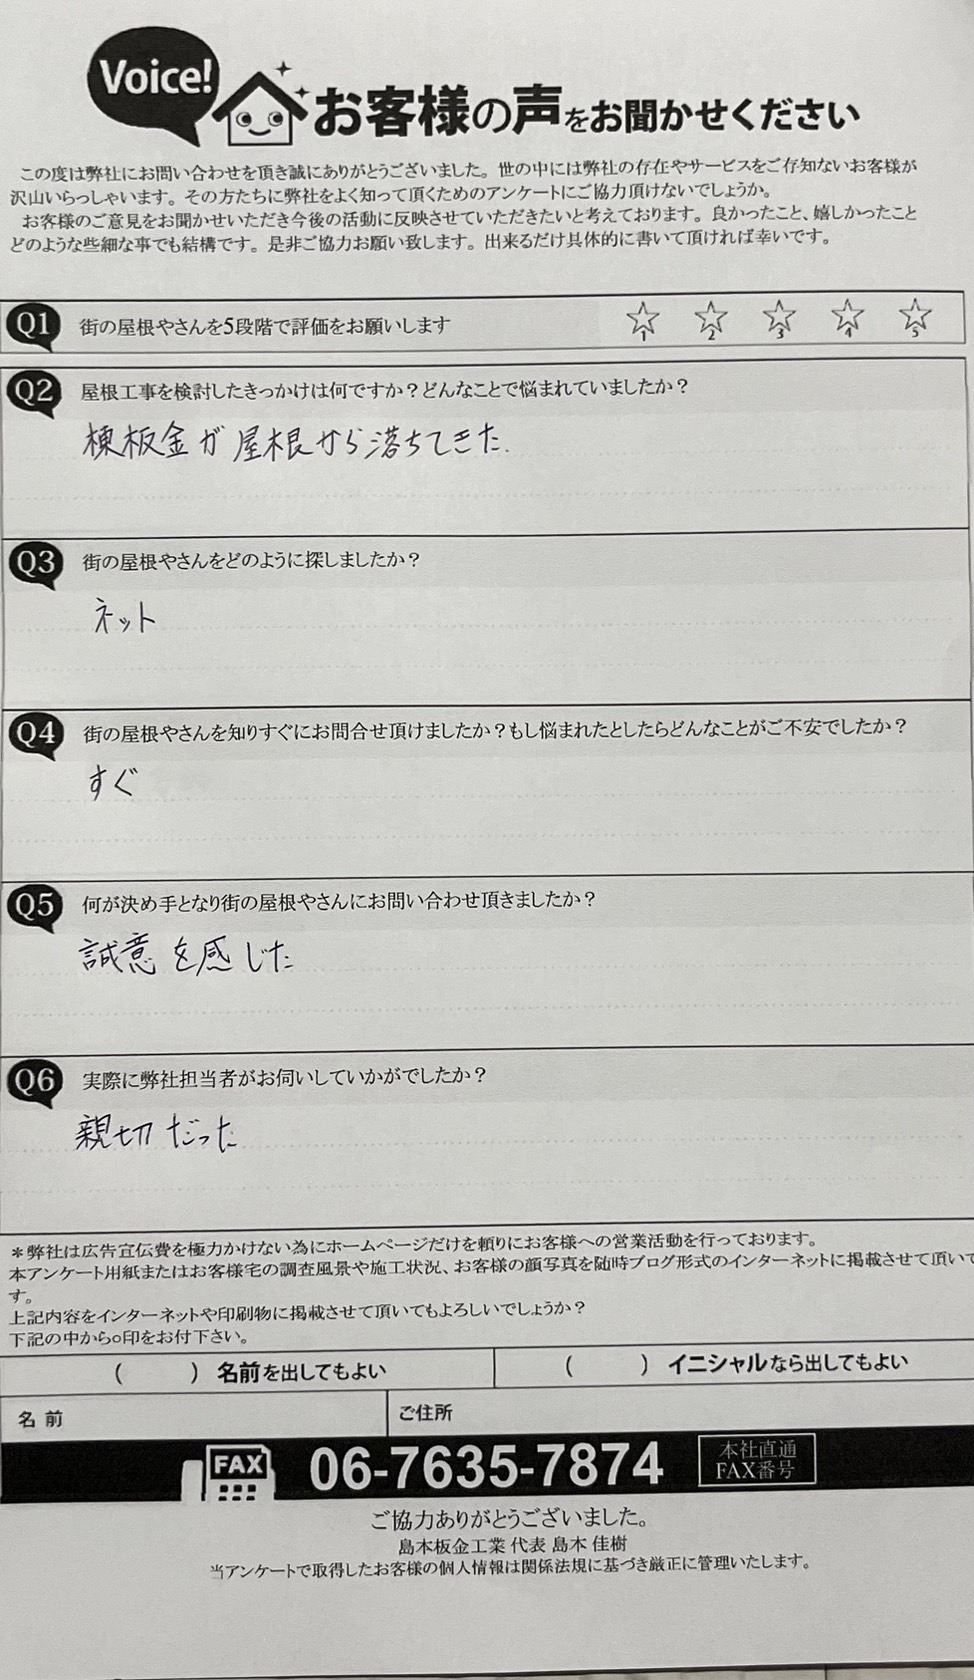 Voice!
お客様の声をお聞かせください
この度は弊社にお問い合わせを頂き誠にありがとうございました。世の中には弊社の存在やサービスをご存知ないお客様が
沢山いらっしゃいます。その方たちに弊社をよく知って頂くためのアンケートにご協力頂けないでしょうか。
お客様のご意見をお聞かせいただき今後の活動に反映させていただきたいと考えております。良かったこと、嬉しかったこと
どのような些細な事でも結構です。是非ご協力お願い致します。出来るだけ具体的に書いて頂ければ幸いです。
Q1 街の屋根やさんを5段階で評価をお願いします ☆1 ☆2 ☆3 ☆4 ☆5
Q2 屋根工事を検討したきっかけは何ですか？どんなことで悩まれていましたか？
棟板金が屋根から落ちてきた.
Q3 街の屋根やさんをどのように探しましたか？
ネット
Q4 街の屋根やさんを知りすぐにお問合せ頂けましたか？もし悩まれたとしたらどんなことがご不安でしたか？
すぐ
Q5 何が決め手となり街の屋根やさんにお問い合わせ頂きましたか？
誠意を感じた
Q6 実際に弊社担当者がお伺いしていかがでしたか？
親切だった
＊弊社は広告宣伝費を極力かけない為にホームページだけを頼りにお客様への営業活動を行っております。
本アンケート用紙またはお客様宅の調査風景や施工状況、お客様の顔写真を随時ブログ形式のインターネットに掲載させて頂いて
す。
上記内容をインターネットや印刷物に掲載させて頂いてもよろしいでしょうか？
下記の中から○印をお付下さい。
（　　　）名前を出してもよい （　　　）イニシャルなら出してもよい
名 前 ご住所
FAX 06-7635-7874 本社直通
FAX番号
ご協力ありがとうございました。
島本板金工業 代表 島木 佳樹
当アンケートで取得したお客様の個人情報は関係法規に基づき厳正に管理いたします。